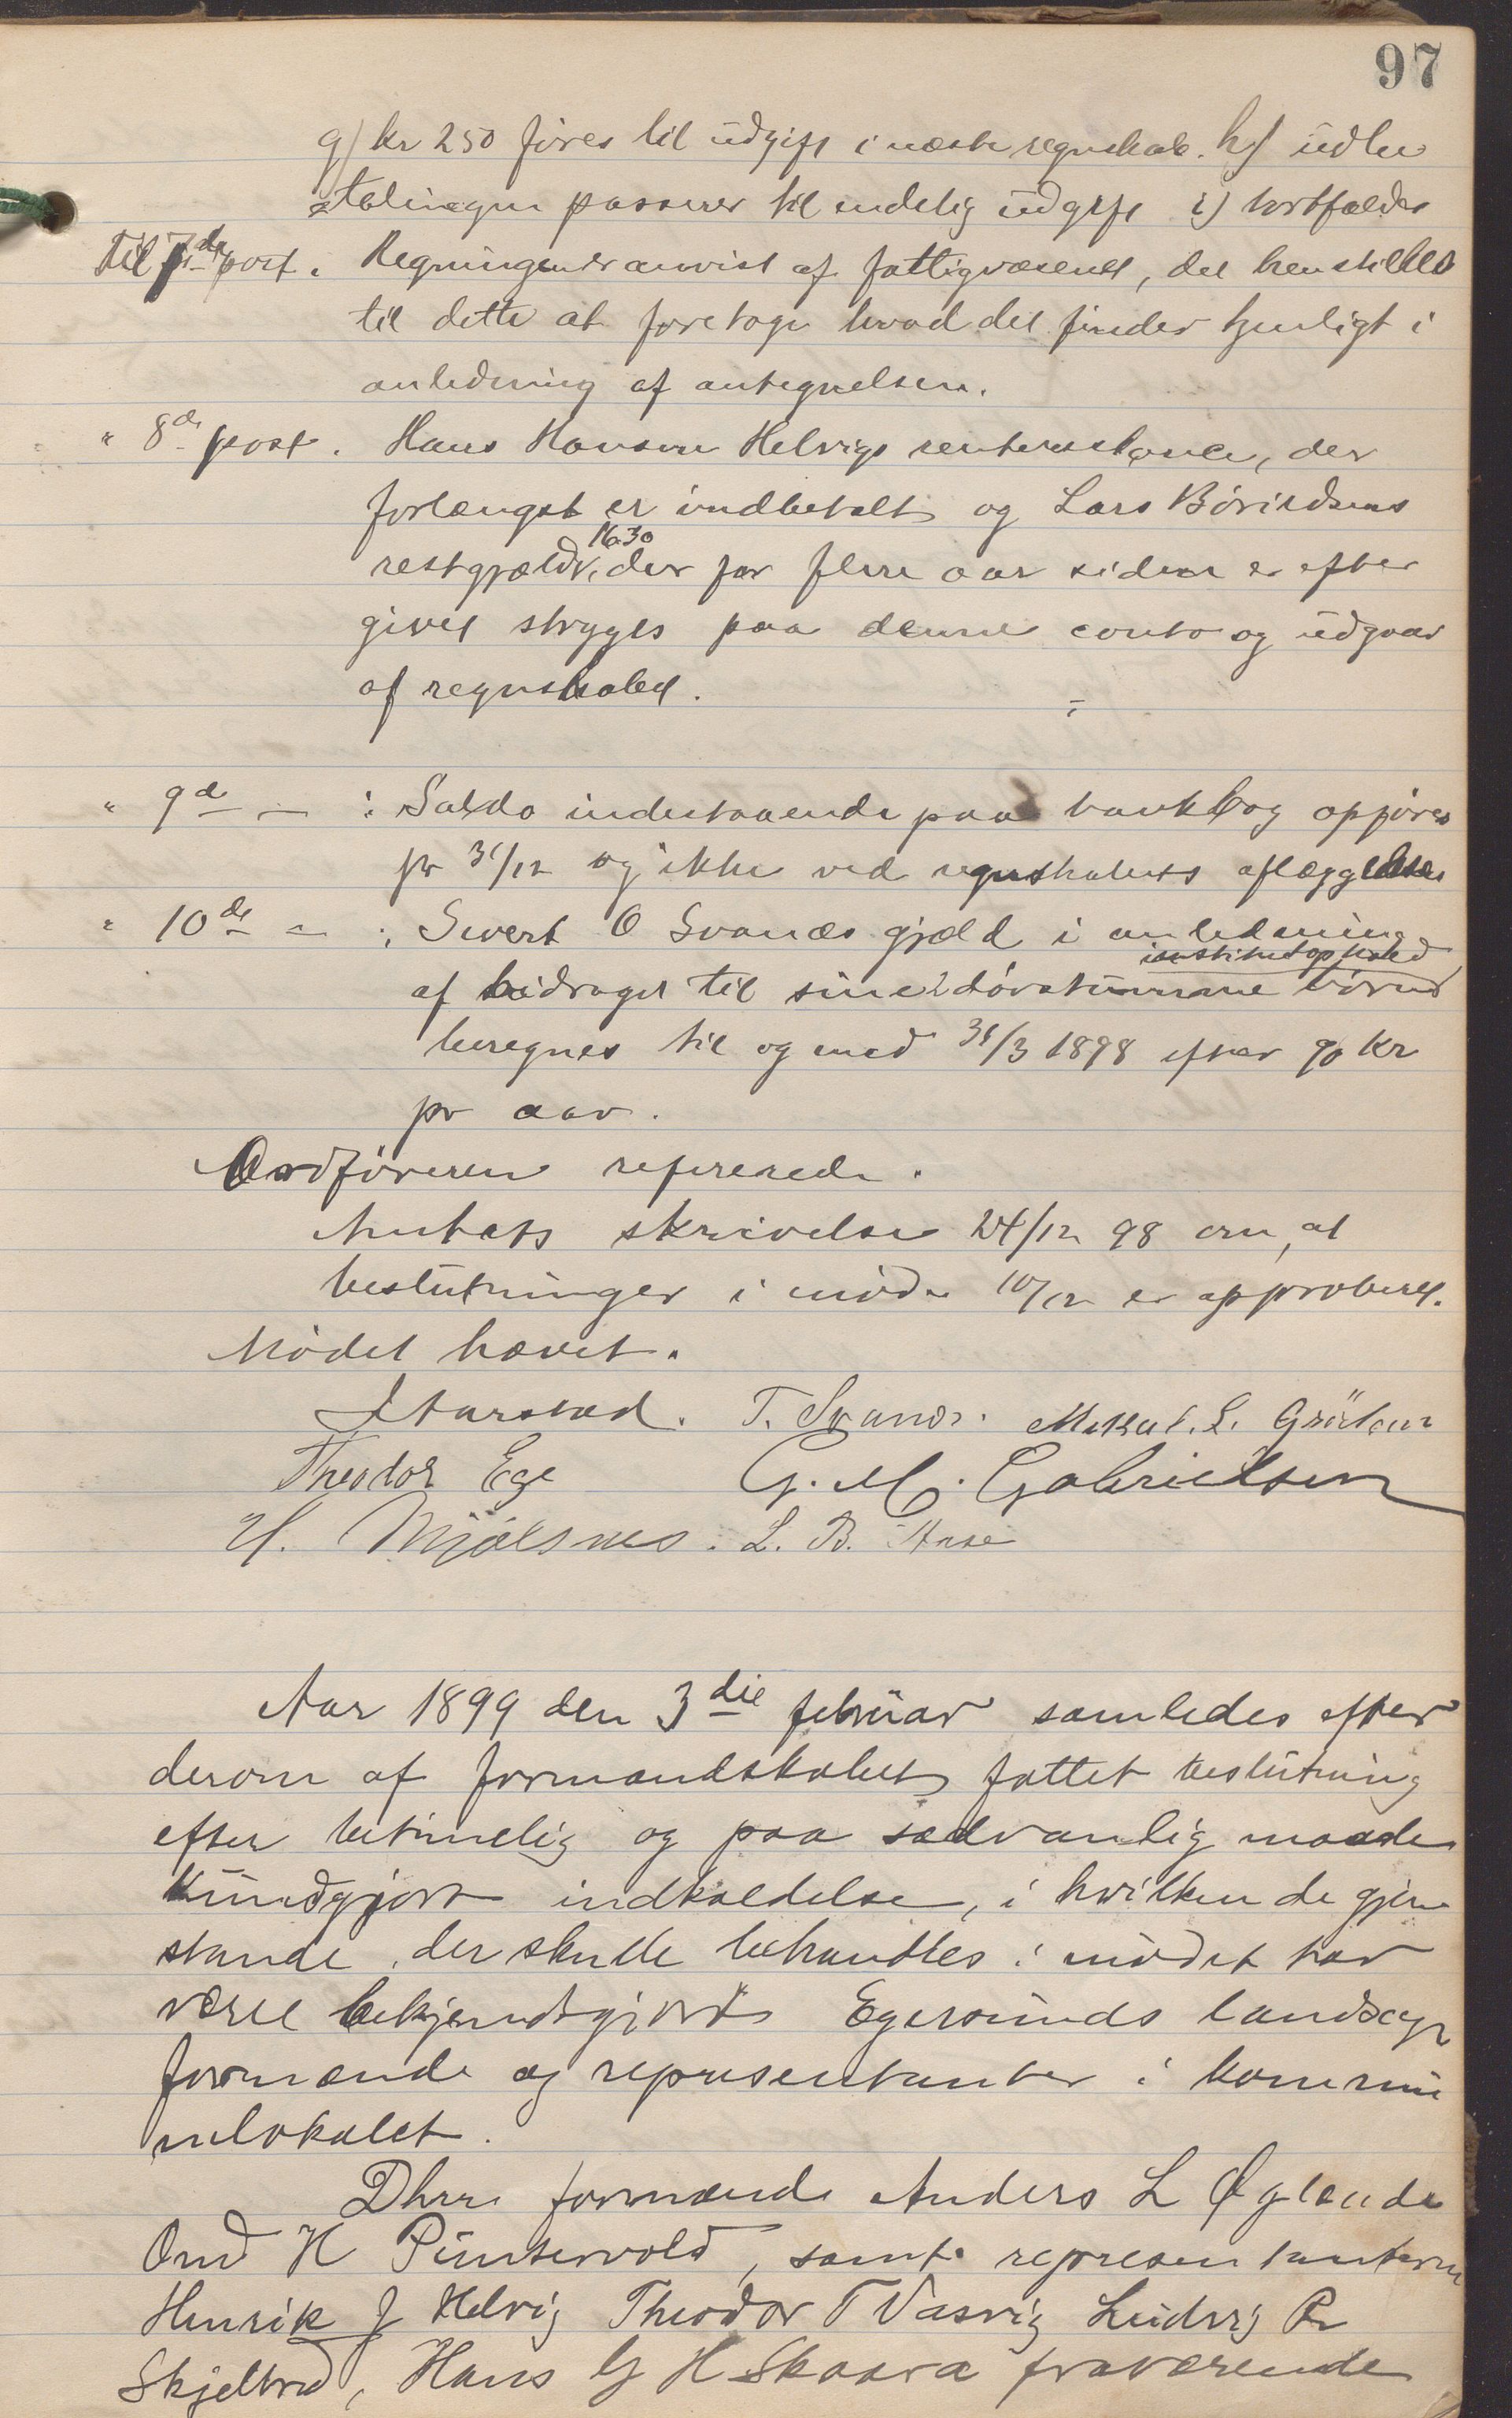 97
g) kr 250 føres til udgift i næste regnskab. h) udbe
talingen passerer til endelig udgift i) bortfalder
Til 7de post. Regningen er anvist af fattigvæsenet, det henstilles
til dette at foretage hvad det finder tjenligt i
anledning af antegnelsen.
" 8de post. Hans Hansen Helvigs renterestance, der
forlængst er indbetalt og Lars Børildsens
16.30
restgjæld, der for flere aar siden er efter
givet stryges paa denne conto og udgaar
af regnskabet.
" 9de — : Saldo indestaaende paa bankbog opføres
pr 31/12 og ikke ved regnskabets aflæggelse
" 10de — : Sivert O Svanæs gjæld i anledning
institutophold
af bidraget til sine 2 døvstumme børns
beregnes til og med 31/3 1898 efter 90 kr
pr aar.
Ordføreren refererede.
Amtets skrivelse 24/12 98 om, at
beslutninger i møde 10/12 er approberet.
Mødet hævet.
Starstad. T. Svanæs. Mikal. L. Grøsteen
Theodor Ege G. M. Gabrielsen
H. Mjølsnes. L. B. Aase
Aar 1899 den 3die februar samledes efter
derom af formandskabet fattet beslutning
efter betimelig og paa sædvanlig maade
kundgjort indkaldelse, i hvilken de gjen
stande, der skulle behandles i mødet har
været bekjendtgjort Egersunds landsogns
formænde og repræsentanter i kommu
nelokalet.
Dhrr. formænd Anders L Øglænde
Omd H Puntervold, samt repræsentanterne
Henrik J Helvig Theodor T Vasvig Ludvig R
Skjelbred, Hans G H Skaara fraværende